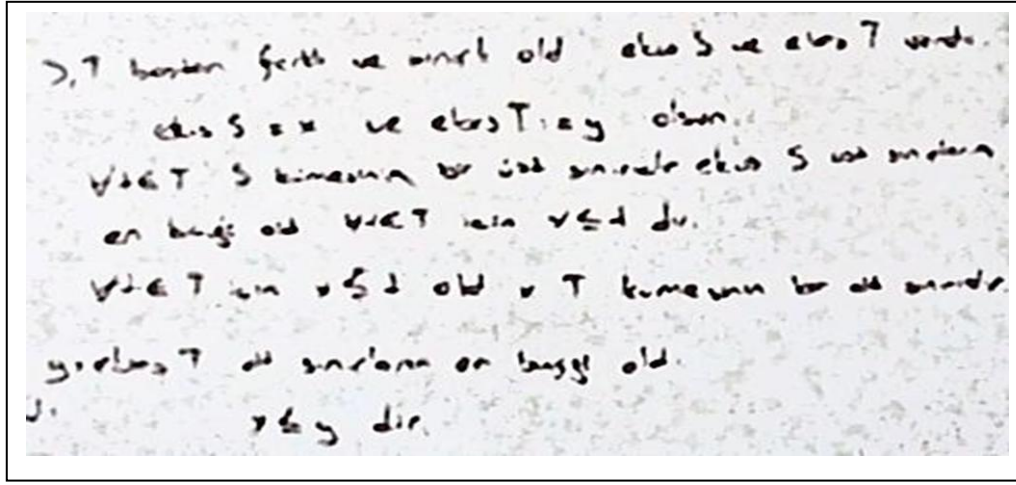 S,T boştan farklı ve sınırlı old ekus S ve ebas T vardır.
ekus S = x ve ebas T = y olsun.
∀t∈T S kümesinin bir üst sınırıdır ekus S üst sınırların
en küçüğü old ∀t∈T için x≤t dir.
∀t∈T için x≤t old x T kümesinin bir alt sınırıdır.
y=ebas T alt sınırların en büyüğü old.
x≤y dir.